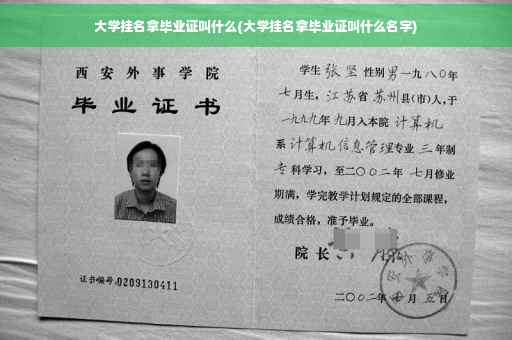 大学挂名拿毕业证叫什么(大学挂名拿毕业证叫什么名字)
西安外事学院
毕业证书
证书编号:0209130411
学生 张坚 性别 男 一九八〇年
七月生，江苏省 苏州县(市)人,于
一九九九年 九月入本院 计算机
系 计算机信息管理专业 三 年制
专科学习，至二〇〇二年 七月修业
期满，学完教学计划规定的全部课程，
成绩合格，准予毕业。
院 长
二〇〇二年 月 五日